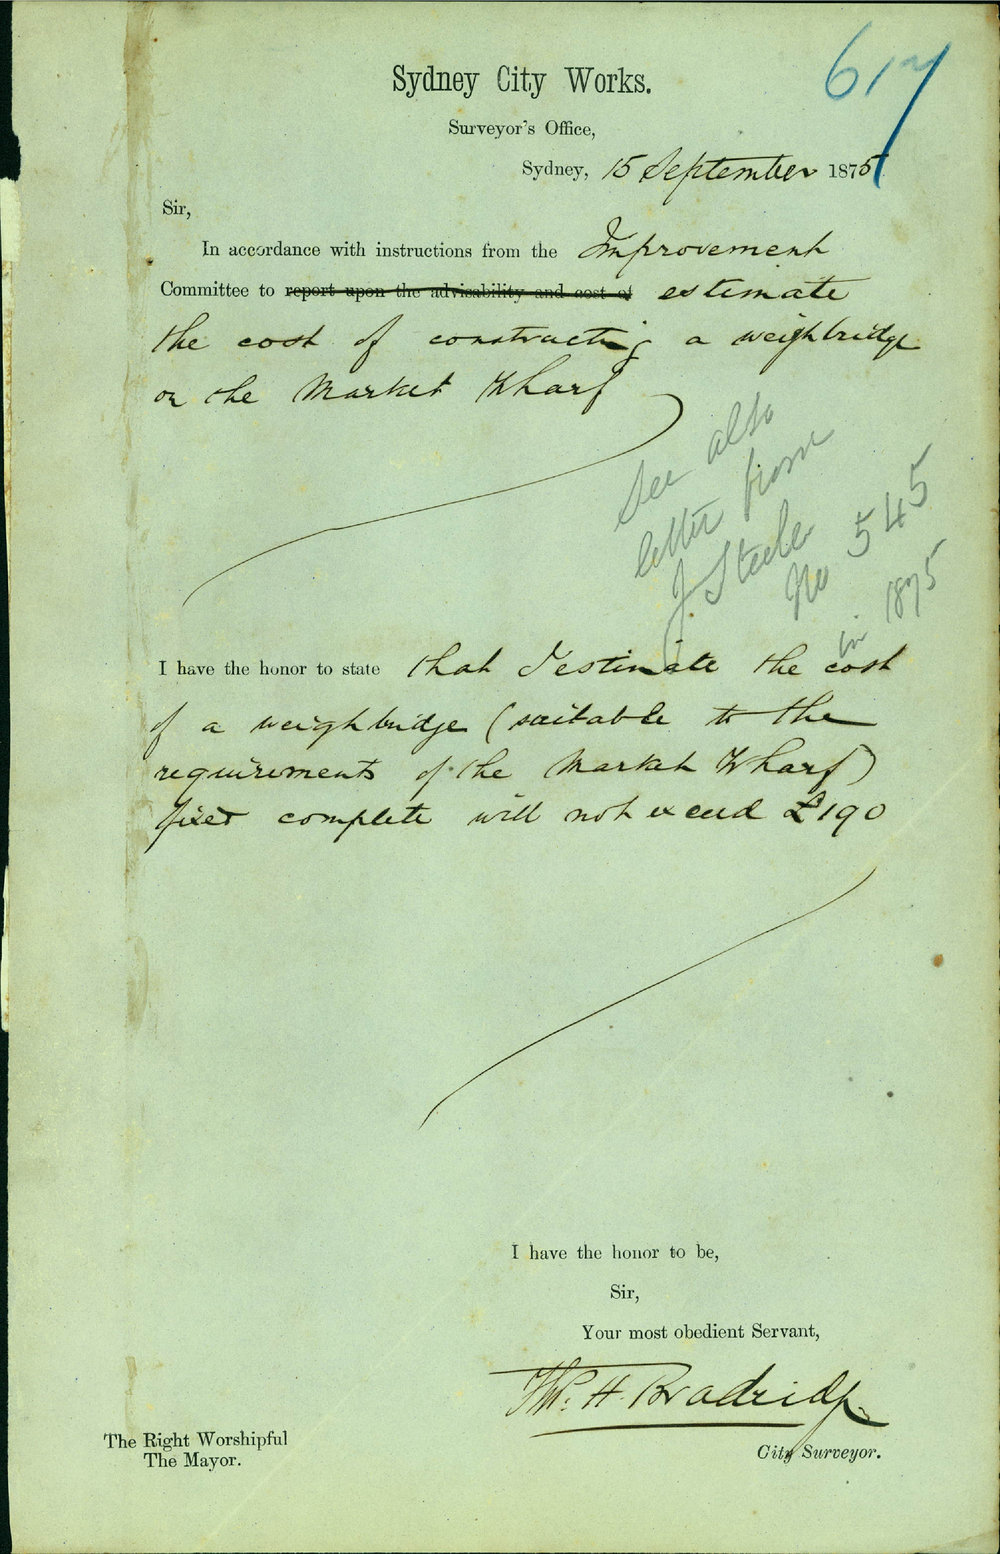 617
Sydney City Works.
Surveyor's Office,
Sydney, 15 September 1875
Sir,
In accordance with instructions from the Improvement
Committee to report upon the advisability and cost of estimate
the cost of constructing a weighbridge
on the Market Wharf
See also
letter from
J. Steele
No 545
in 1875
I have the honor to state that I estimate the cost
of a weighbridge (suitable to the
requirements of the Market Wharf)
fixed complete will not exceed £190
I have the honor to be,
Sir,
Your most obedient Servant,
Thos. H. Bradridge
City Surveyor.
The Right Worshipful
The Mayor.